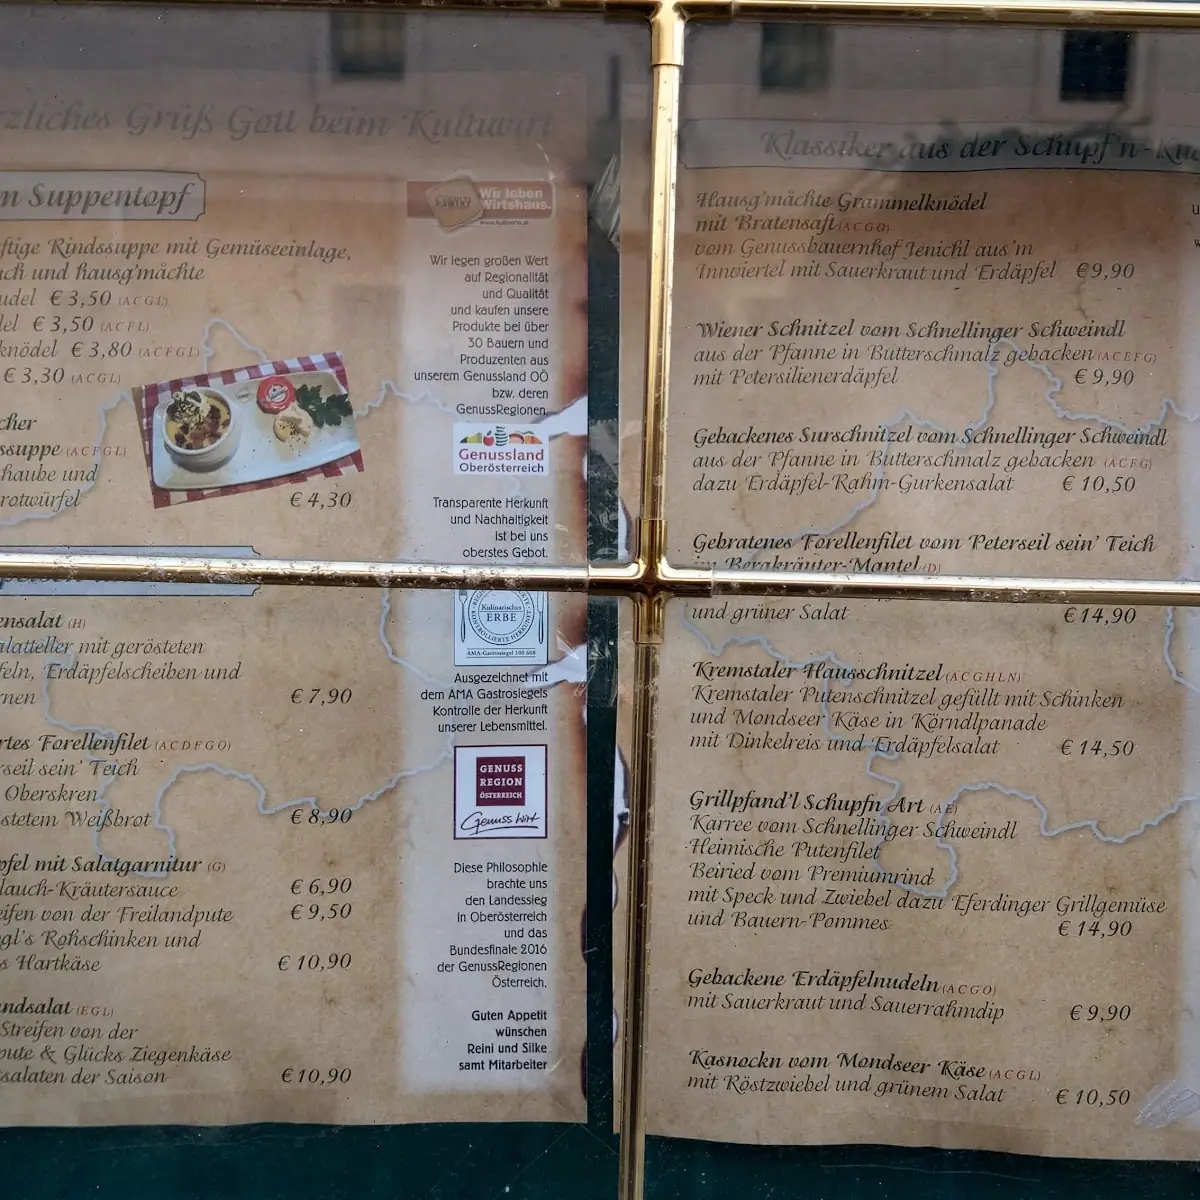 Grüß Gott beim Kultiwirt
Suppentopf
Rindssuppe mit Gemüseeinlage,
und hausg'måchte
€ 3,50 (A C G L)
€ 3,50 (A C F L)
knödel € 3,80 (A C F G L)
€ 3,30 (A C G L)
(A C F G L)
haube und
€ 4,30
Wir leben
Wirtshaus.
www.kultiwirte.at
Wir legen großen Wert
auf Regionalität
und Qualität
und kaufen unsere
Produkte bei über
30 Bauern und
Produzenten aus
unserem Genussland OÖ
bzw. deren
GenussRegionen.
Genussland
Oberösterreich
Transparente Herkunft
und Nachhaltigkeit
ist bei uns
oberstes Gebot.
Kulinarisches
ERBE
KONTROLLIERTE HERKUNFT
AMA-Gastrosiegel 100 608
Ausgezeichnet mit
dem AMA Gastrosiegels
Kontrolle der Herkunft
unserer Lebensmittel.
GENUSS
REGION
ÖSTERREICH
Genuss Wirt
Diese Philosophie
brachte uns
den Landessieg
in Oberösterreich
und das
Bundesfinale 2016
der GenussRegionen
Österreich.
Guten Appetit
wünschen
Reini und Silke
samt Mitarbeiter
ensalat (H)
alatteller mit gerösteten
feln, Erdäpfelscheiben und
rnen € 7,90
rtes Forellenfilet (A C D F G O)
rseil sein' Teich
Oberskren
stetem Weißbrot € 8,90
pfel mit Salatgarnitur (G)
lauch-Kräutersauce € 6,90
eifen von der Freilandpute € 9,50
gl's Rohschinken und
s Hartkäse € 10,90
ndsalat (E G L)
Streifen von der
pute & Glücks Ziegenkäse
tsalaten der Saison € 10,90
Klassiker aus der Schupf'n-
Hausg'måchte Grammelknödel
mit Bratensaft (A C G O)
vom Genussbauernhof Jenichl aus'm
Innviertel mit Sauerkraut und Erdäpfel € 9,90
Wiener Schnitzel vom Schnellinger Schweindl
aus der Pfanne in Butterschmalz gebacken (A C E F G)
mit Petersilienerdäpfel € 9,90
Gebackenes Surschnitzel vom Schnellinger Schweindl
aus der Pfanne in Butterschmalz gebacken (A C F G)
dazu Erdäpfel-Rahm-Gurkensalat € 10,50
Gebratenes Forellenfilet vom Peterseil sein' Teich
im Bergkräuter-Mantel (D)
und grüner Salat € 14,90
Kremstaler Hausschnitzel (A C G H L N)
Kremstaler Putenschnitzel gefüllt mit Schinken
und Mondseer Käse in Körndlpanade
mit Dinkelreis und Erdäpfelsalat € 14,50
Grillpfand'l Schupfn Art (A E)
Karree vom Schnellinger Schweindl
Heimische Putenfilet
Beiried vom Premiumrind
mit Speck und Zwiebel dazu Eferdinger Grillgemüse
und Bauern-Pommes € 14,90
Gebackene Erdäpfelnudeln (A C G O)
mit Sauerkraut und Sauerrahmdip € 9,90
Kasnockn vom Mondseer Käse (A C G L)
mit Röstzwiebel und grünem Salat € 10,50